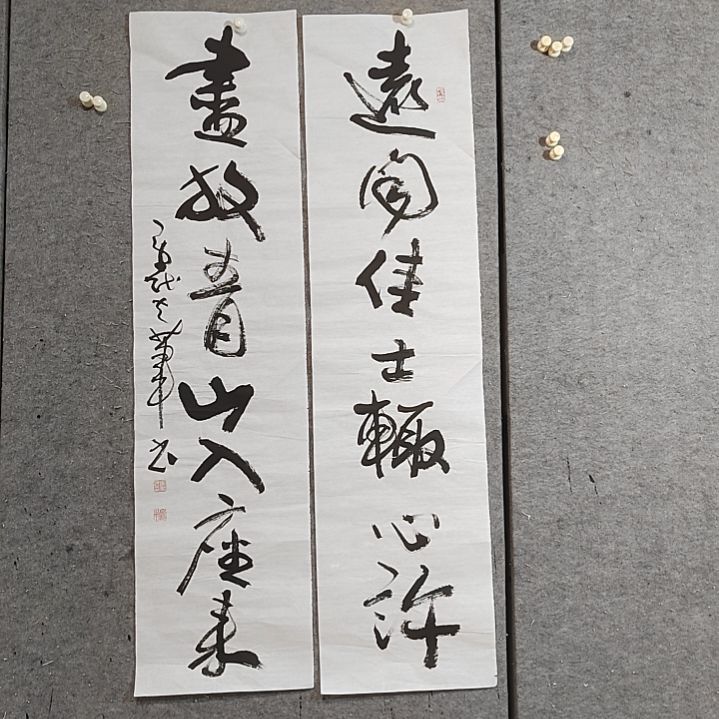 遠聞佳士輒心許
盡放青山入座来